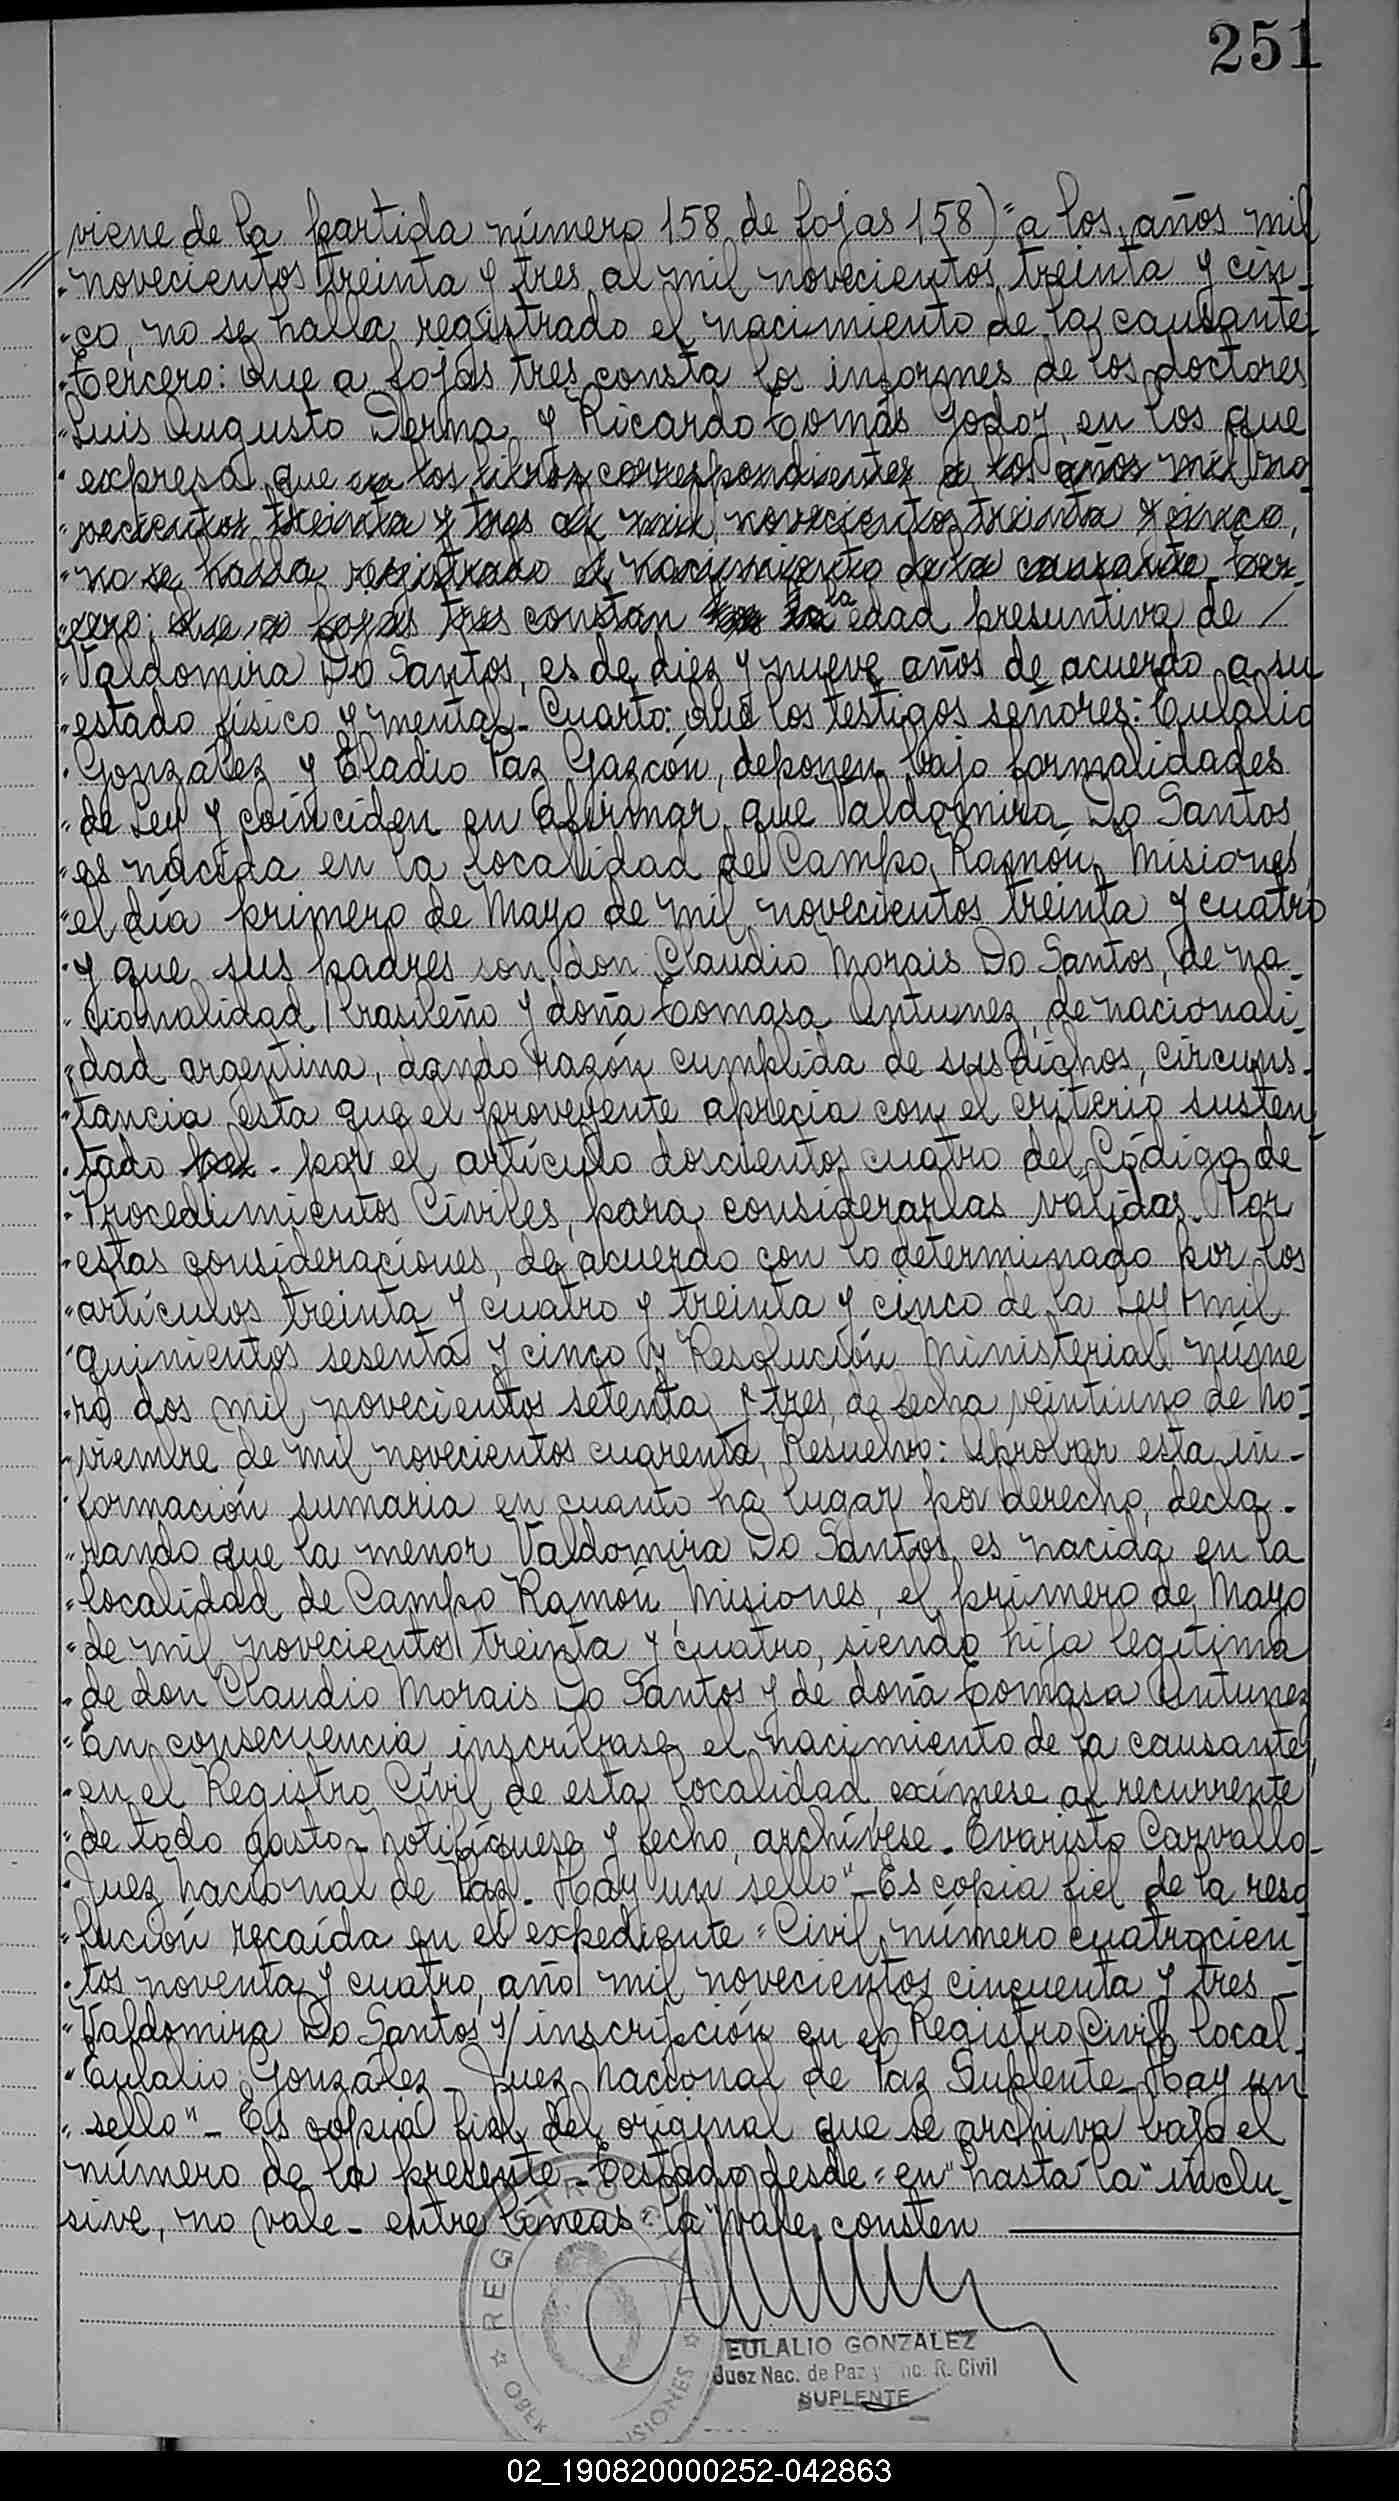 251
viene de la partida número 158 de fojas 158) "a los años mil
" novecientos treinta y tres al mil novecientos treinta y cin-
" co, no se halla registrado el nacimiento de la causante.
" Tercero: Que a fojas tres consta los informes de los doctores
" Luis Augusto Derna y Ricardo Tomás Godoy, en los que
" expresa que en los libros correspondientes a los años mil no
" vecientos treinta y tres al mil novecientos treinta y cinco,
" no se halla registrado el nacimiento de la causante. Ter-
cero: Que a fojas tres constan la edad presuntiva de /
" Valdomira Do Santos, es de diez y nueve años de acuerdo a su
" estado físico y mental.- Cuarto: Que los testigos señores: Eulalio
" González y Eladio Paz Gazcón, deponen bajo formalidades
" de Ley y coinciden en afirmar que Valdomira Do Santos
" es nacida en la localidad de Campo Ramón, Misiones,
" el día primero de Mayo de mil novecientos treinta y cuatro
" y que sus padres son don Claudio Morais Do Santos, de na-
" cionalidad brasileño y doña Tomasa Antunez, de nacionali-
" dad argentina, dando razón cumplida de sus dichos, circuns-
" tancia esta que el proveyente aprecia con el criterio susten
" tado - por el artículo doscientos cuatro del Código de
" Procedimientos Civiles, para considerarlas válidas. Por
" estas consideraciones, de acuerdo con lo determinado por los
" artículos treinta y cuatro y treinta y cinco de la Ley mil
" quinientos sesenta y cinco y Resolución Ministerial núme
" ro dos mil novecientos setenta y tres, de fecha veintiuno de No-
" viembre de mil novecientos cuarenta, Resuelvo: Aprobar esta in-
" formación sumaria en cuanto ha lugar por derecho, decla-
" rando que la menor Valdomira Do Santos es nacida en la
" localidad de Campo Ramón, Misiones, el primero de Mayo
" de mil novecientos treinta y cuatro, siendo hija legítima
" de don Claudio Morais Do Santos y de doña Tomasa Antunez
" En consecuencia inscríbase el nacimiento de la causante,
" en el Registro Civil de esta localidad, exímese al recurrente
" de todo gasto.- Notifíquese y fecho, archívese.- Evaristo Carvallo-
" Juez Nacional de Paz.- Hay un sello".- Es copia fiel de la reso
" lución recaída en el expediente "Civil número cuatrocien
" tos noventa y cuatro, año mil novecientos cincuenta y tres -
" Valdomira Do Santos s/ inscripción en el Registro Civil local.
" Eulalio González - Juez Nacional de Paz Suplente - Hay un
" sello".- Es copia fiel del original que se archiva bajo el
número de la presente.- Testado desde "en" hasta "la" inclu-
sive, no vale.- entre líneas "la" vale. consten
REGISTRO
MISIONES
EULALIO GONZALEZ
Juez Nac. de Paz y Enc. R. Civil
SUPLENTE
02_190820000252-042863